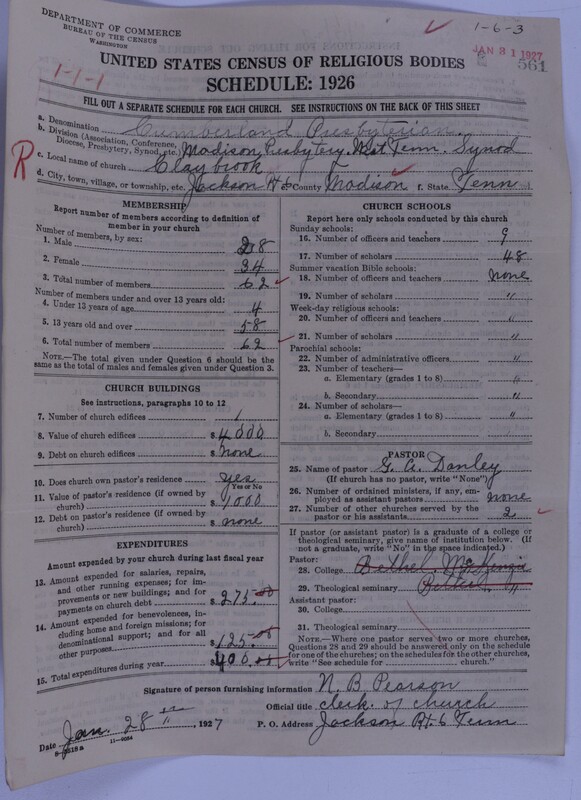 DEPARTMENT OF COMMERCE
BUREAU OF THE CENSUS
WASHINGTON
1-6-3
JAN 31 1927
561
1-1-1
UNITED STATES CENSUS OF RELIGIOUS BODIES
SCHEDULE: 1926
FILL OUT A SEPARATE SCHEDULE FOR EACH CHURCH. SEE INSTRUCTIONS ON THE BACK OF THIS SHEET
a. Denomination Cumberland Presbyterian
b. Division (Association, Conference, Diocese, Presbytery, Synod, etc.) Madison Presbytery West Tenn. Synod
R
c. Local name of church Claybrook
d. City, town, village, or township, etc. Jackson Rt 6 County Madison f. State Tenn
MEMBERSHIP
Report number of members according to definition of member in your church
Number of members, by sex:
1. Male 28
2. Female 34
3. Total number of members 62
Number of members under and over 13 years old:
4. Under 13 years of age 4
5. 13 years old and over 58
6. Total number of members 62
NOTE.—The total given under Question 6 should be the same as the total of males and females given under Question 3.
CHURCH BUILDINGS
See instructions, paragraphs 10 to 12
7. Number of church edifices 1
8. Value of church edifices $4000
9. Debt on church edifices $ none
10. Does church own pastor's residence yes
Yes or No
11. Value of pastor's residence (if owned by church) $1000
12. Debt on pastor's residence (if owned by church) $ none
EXPENDITURES
Amount expended by your church during last fiscal year
13. Amount expended for salaries, repairs, and other running expenses; for improvements or new buildings; and for payments on church debt $275.00
14. Amount expended for benevolences, including home and foreign missions; for denominational support; and for all other purposes $125.00
15. Total expenditures during year $400.00
CHURCH SCHOOLS
Report here only schools conducted by this church
Sunday schools:
16. Number of officers and teachers 9
17. Number of scholars 48
Summer vacation Bible schools:
18. Number of officers and teachers none
19. Number of scholars "
Week-day religious schools:
20. Number of officers and teachers "
21. Number of scholars "
Parochial schools:
22. Number of administrative officers "
23. Number of teachers—
a. Elementary (grades 1 to 8) "
b. Secondary "
24. Number of scholars—
a. Elementary (grades 1 to 8) "
b. Secondary
PASTOR
25. Name of pastor G. A. Danley
(If church has no pastor, write "None")
26. Number of ordained ministers, if any, employed as assistant pastors none
27. Number of other churches served by the pastor or his assistants 2
If pastor (or assistant pastor) is a graduate of a college or theological seminary, give name of institution below. (If not a graduate, write "No" in the space indicated.)
Pastor:
28. College Bethel McKenzie
29. Theological seminary Bethel "
Assistant pastor:
30. College
31. Theological seminary
NOTE.—Where one pastor serves two or more churches, Questions 28 and 29 should be answered only on the schedule for one of the churches; on the schedules for the other churches, write "See schedule for church."
Signature of person furnishing information N. B. Pearson
Official title clerk of church
Date Jan. 28 th, 1927 P. O. Address Jackson Rt. 6 Tenn
8-6818a 11-9034